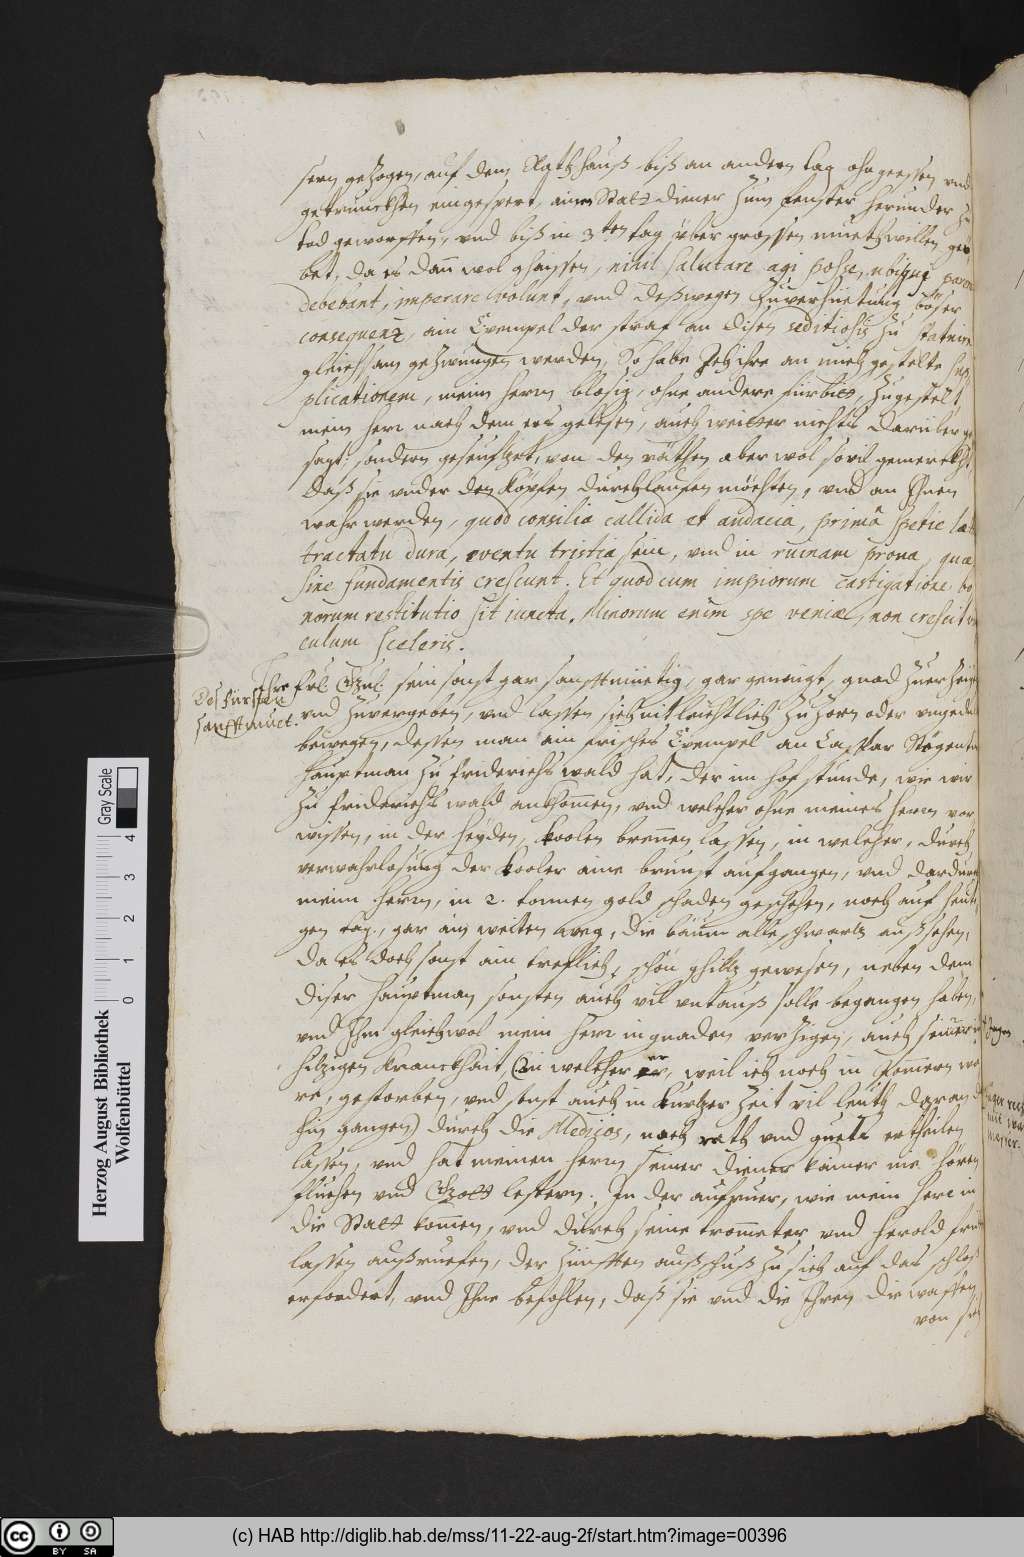 sern gezogen, auf dem Rathhauß biß an andern tag ohngeessen vnd
getrunckhen eingespert, ainen Statt diener zum fenster herunder zu
tod geworffen, vnd biß in 3ten tag über grossen muetwillen geü-
bet, da es dann wol ghaissen, nihil salutare agi posse, ubi qui parere
debebant, imperare volunt, vnd deßwegen zuverhüetung böser
consequentz, ain Exempel der straf an disen seditiosis zu statuiren
gleichsam gezwungen werden, So habe Ich ihre an mich gestelte sup-
plicationem, meim herrn blosig, ohne andere fürbitt, zugestelt,
mein herr nach dem ers gelesen, auch weitter nichts darüber ge-
sagt: sondern geseufftzet, von den räthen aber wol sovil gemerckht
daß sie vnder den köpfen durchlaufen möchten, vnd an Ihnen
wahr werden, quod consilia callida et audacia, primâ specie læta
tractatu dura, eventu tristia sein, vnd in ruinam prona, quæ
sine fundamentis crescunt. Et quod cum impiorum castigatione, bo-
norum restitutio sit iuncta. Minorum enim spe veniæ, non crescit
culum sceleris.
Des fürsten
sanfftmuet.
Ihre frl. Gnl. sein sonst gar sanfftmüetig, gar genaigt, gnad zuerzeigen
vnd zuvergeben, vnd lassen sich nit leichtlich zu zorn oder vngedult
bewegen, dessen man ain frisches Exempel an Caspar
hauptman zu friderichswald hat, der im hof stunde, wie wir
zu friderichswald ankhommen, vnd welcher ohne meines herrn vor-
wissen, in der heyden, koolen brennen lassen, in welcher, durch
verwahrlosung der kooler aine brunst aufgangen, vnd dardurch
meim herrn, in 2. tonnen gold schaden geschehen, noch auf heuti-
gen tag, gar ain weiten weg, die bäum alle schwartz außsehen,
da es doch sonst ain trefflich, schön ghültz gewesen, neben dem
diser hauptman sonsten auch vil vntauß solle begangen haben,
vnd Ihm gleichwol mein herr in gnaden verzigen, auch seiner in
hitzigen kranckhait, (in welcher er, weil ich noch in Pomern wa-
re, gestorben, vnd sonst auch in kurtzer zeit vil leuth daran
hin gangen) durch die Medicos, noch rath vnd guete ertheilen
lassen, vnd hat meinen herrn seiner diener kainer nie hören
fluchen vnd Gott lestern. In der aufruer, wie mein herr in
die Statt kommen, vnd durch seine trommeter vnd herold
lassen außruefen, der zünfften außschuß zu sich auf das schloß
erfordert, vnd Ihne befohlen, daß sie vnd die Ihren die waffen
von sich
Herzog August Bibliothek
Wolfenbüttel
0 1 2 3 4
Gray Scale
cc BY SA
(c) HAB http://diglib.hab.de/mss/11-22-aug-2f/start.htm?image=00396